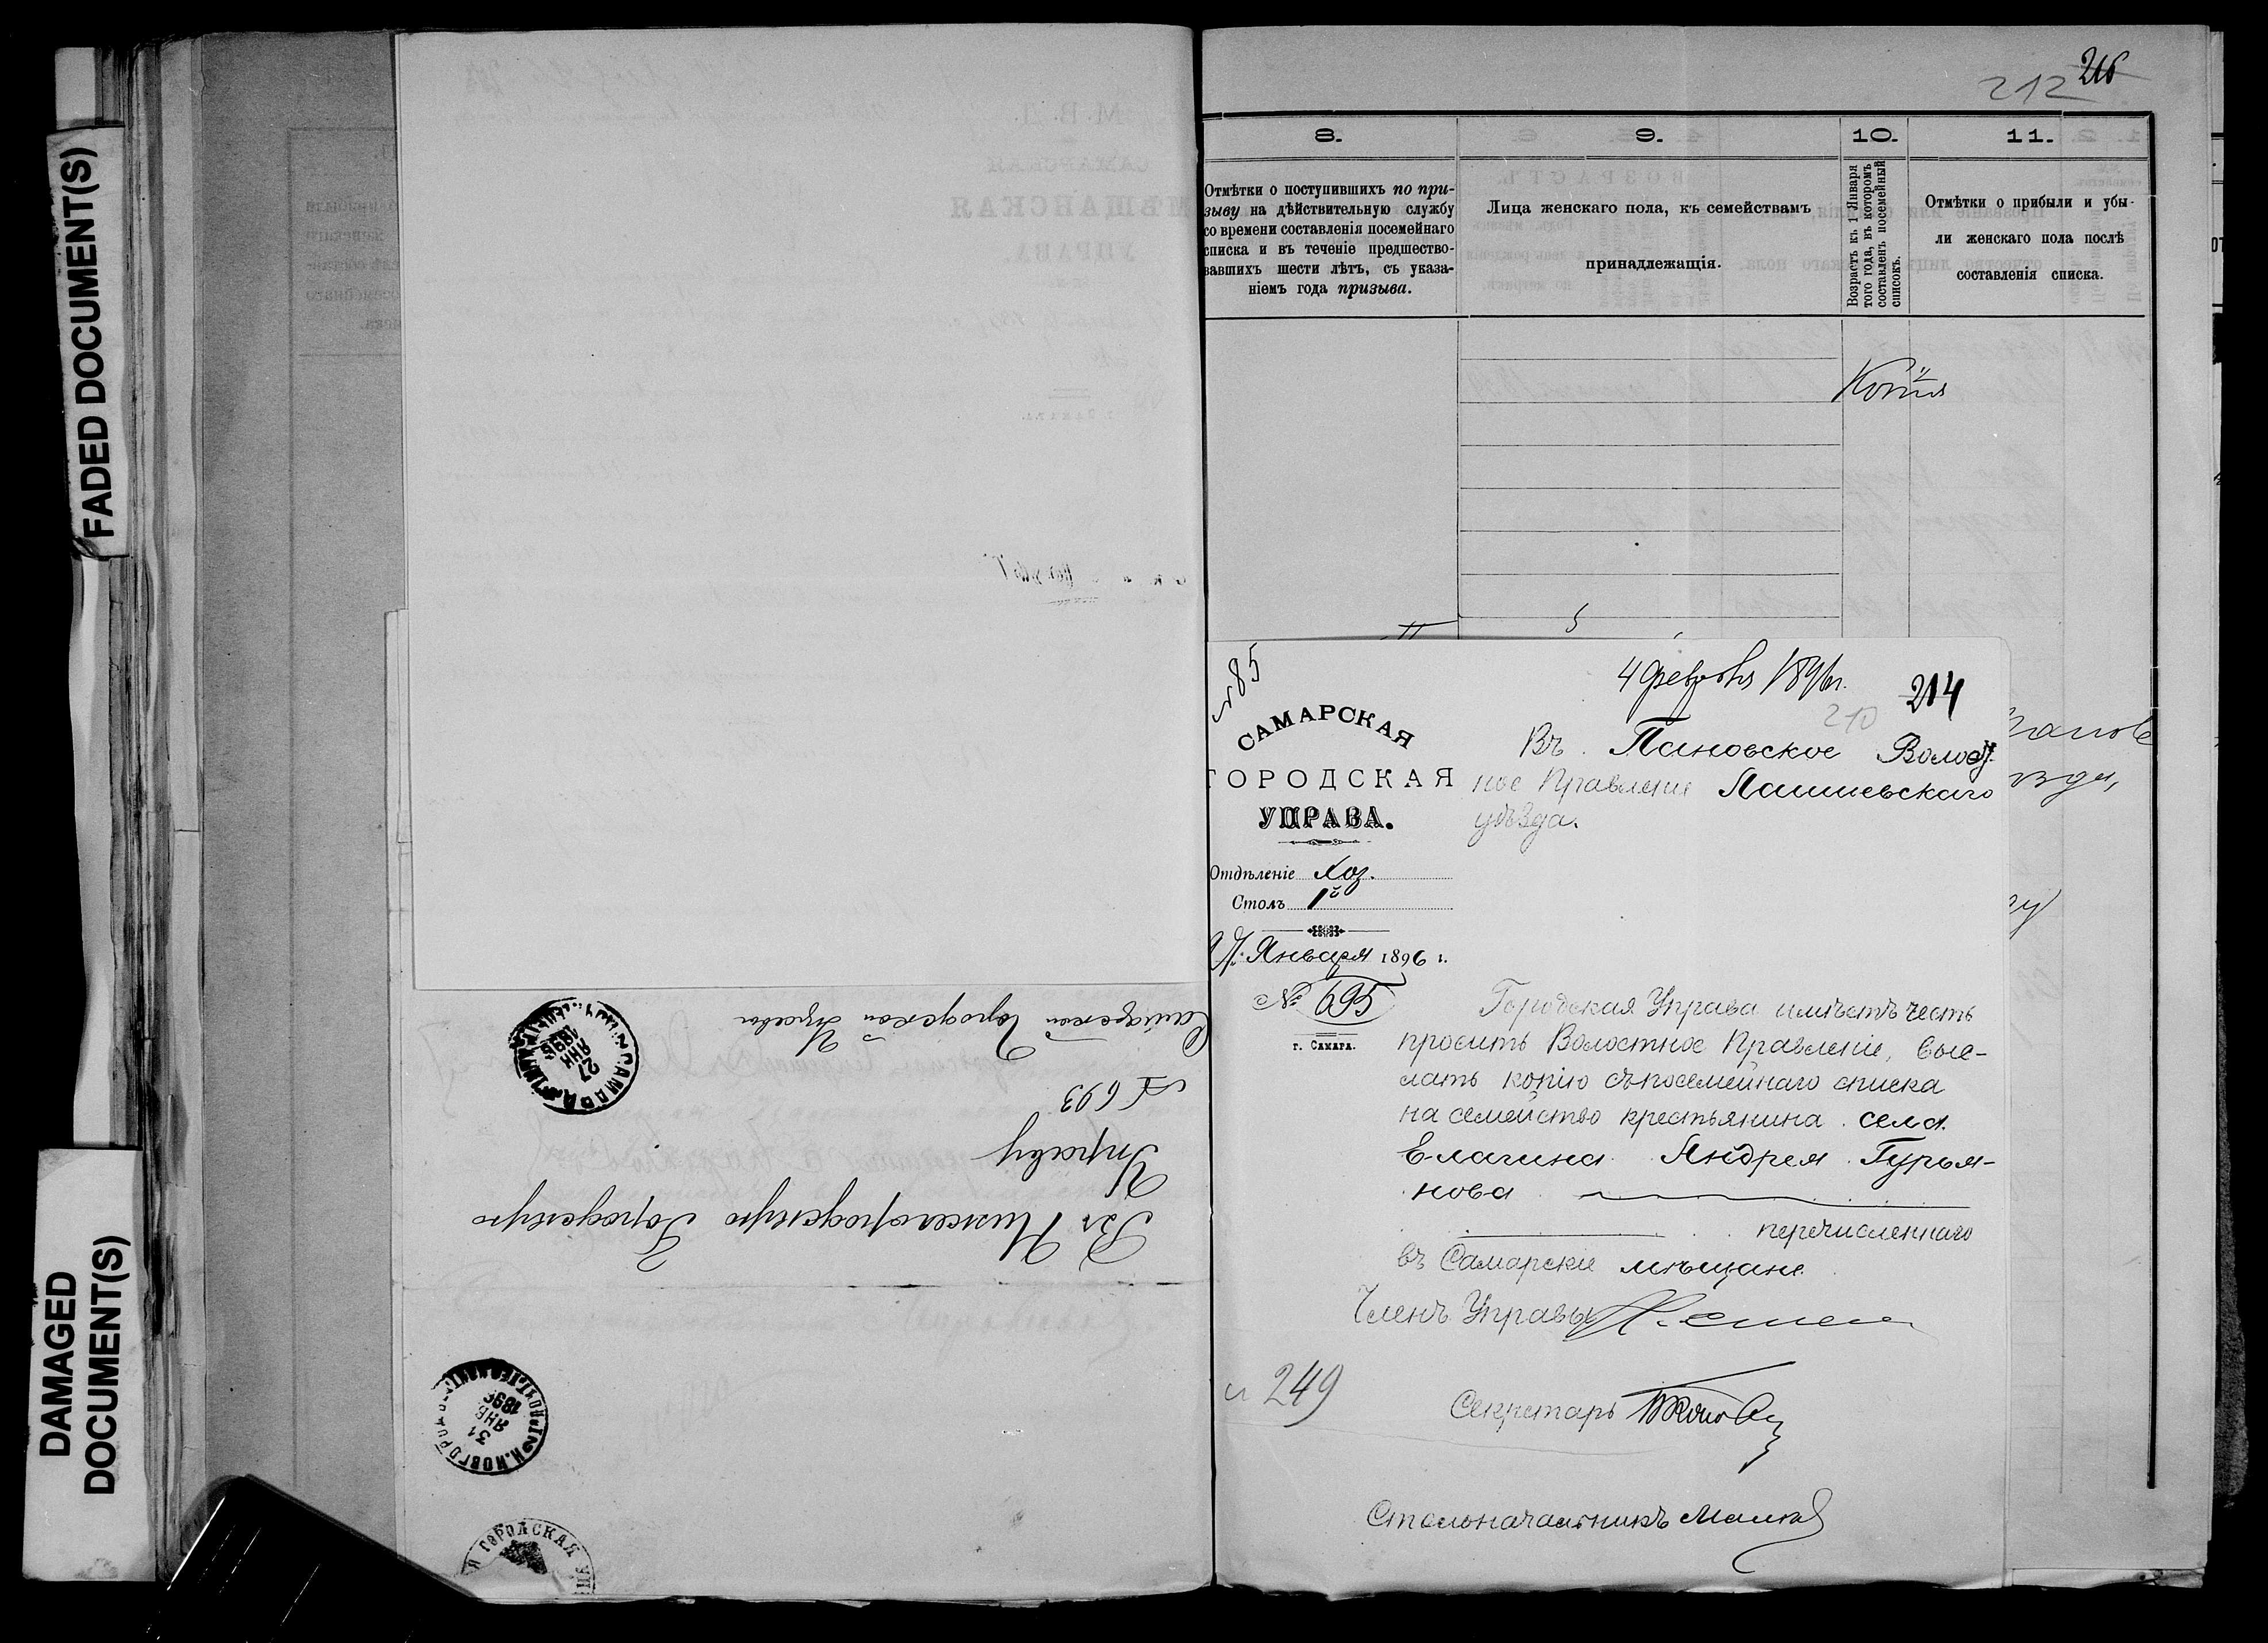 FADED DOCUMENT(S)
DAMAGED
DOCUMENT(S)
Самарской Городской Управы
№ 693
Въ Нижегородскую Городскую
Управу
27
ЯНВ
1896
31
ЯНВ
1896
ГОРОДСКАЯ
212
8.
Отмѣтки о поступившихъ по при-
зыву на дѣйствительную службу
со времени составленія посемейнаго
списка и въ теченіе предшество-
вавшихъ шести лѣтъ, съ указа-
ніемъ года призыва.
9.
Лица женскаго пола, къ семействамъ
принадлежащія.
10.
Возрастъ къ 1 Января
того года, въ которомъ
составленъ посемейный
списокъ.
11.
Отмѣтки о прибыли и убы-
ли женскаго пола послѣ
составленія списка.
Копія
№ 85
4 февраля 1896 г.
214
210
САМАРСКАЯ
ГОРОДСКАЯ
УПРАВА.
Отдѣленіе Хоз.
Столъ 1й
Января 1896 г.
№ 695
г. САМАРА.
Въ Пановское Волост-
ное Правленіе Лаишевскаго
уѣзда.
Городская Управа имѣетъ честь
просить Волостное Правленіе, выс-
лать копію съ посемейнаго списка
на семейство крестьянина села
Елагина Андрея Гурья-
нова
перечисленнаго
въ Самарскіе мѣщане.
Членъ Управы
249
Секретарь
Столоначальникъ